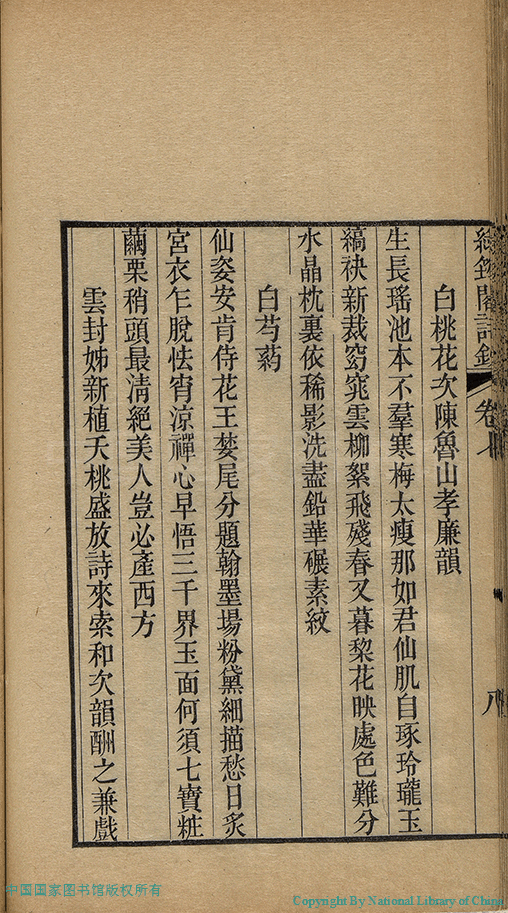 閣詩鈔 卷 八
白桃花次陳魯山孝廉韻
生長瑤池本不羣寒梅太瘦那如君仙肌自琢玲瓏玉
縞袂新裁窈窕雲柳絮飛殘春又暮棃花映處色難分
水晶枕裏依稀影洗盡鉛華碾素紋
白芍葯
仙姿安肯侍花王婪尾分題翰墨場粉黛細描愁日炙
宮衣乍脫怯宵涼禪心早悟三千界玉面何須七寶粧
繭栗稍頭最清絕美人豈必產西方
雲封姊新植夭桃盛放詩來索和次韻酬之兼戲
中国国家图书馆版权所有
Copyright By National Library of China